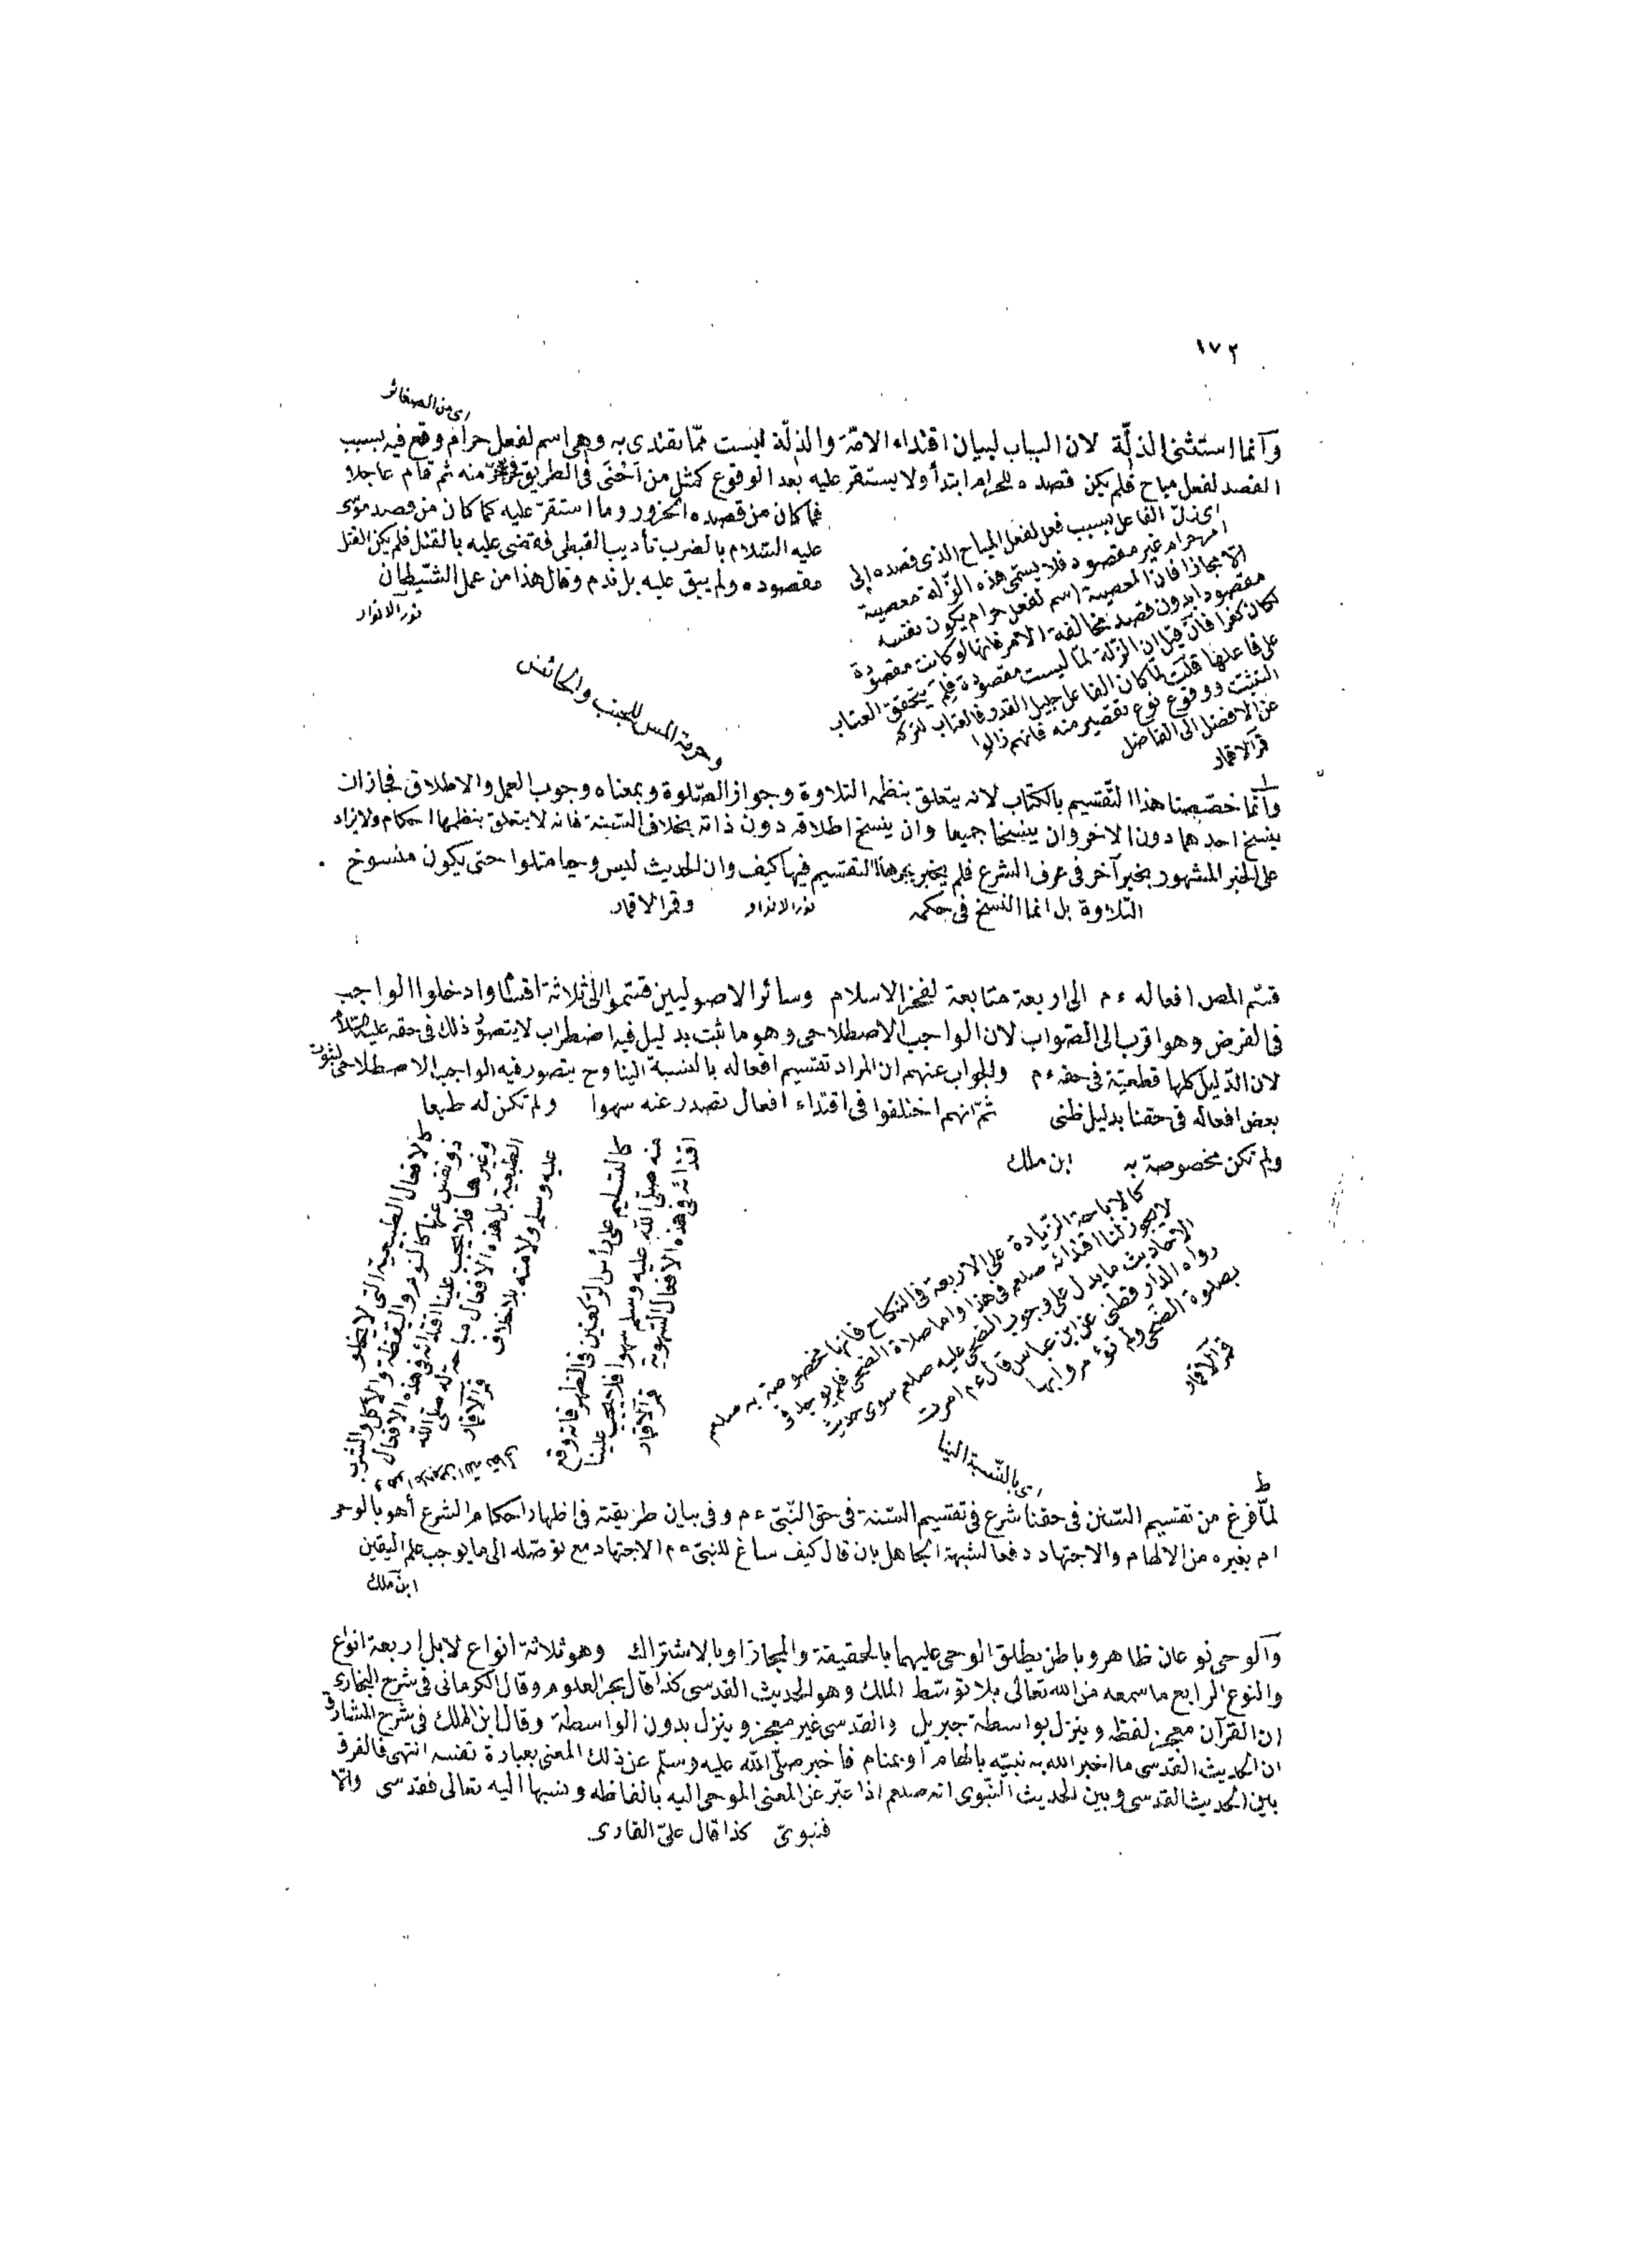 ١٧٢
اى من الصغائر
وآنما استثنى الذلّة لان الباب لبيان اقتداء الامّة والذلّة ليست ممّا يقتدى به وهى اسم لفعل حرام وقع فيه بسبب
القصد لفعل مباح فلم يكن قصده للحرام ابتدأ ولا يستقرّ عليه بعد الوقوع كمثل من أحنى فى الطريق منه ثم قام عاجلا
فما كان من قصده الخزور وما استقرّ عليه كما كان من قصد موسى
عليه السّلام بالضرب تأديب القبطى فقضى عليه بالقتل فلم يكن القتل
مقصوده ولم يبق عليه بل ندم وقال هذا من عمل الشّيطان
نور الانوار
اى زلّ الفاعل بسبب فعل لفعل المباح الذى قصده الى
امر حرام غير مقصود فلا يسمّى هذه الزّلة معصية
الّا مجازا فانّ المعصية اسم لفعل حرام يكون نفسه
مقصودا بدون قصد مخالفة الامر فانها لو كانت مقصودة
لكان كفرا فان قيل ان الزلة لمّا ليست مقصودة فلم يتحقق العتاب
على فاعلها قلت لمّا كان الفاعل جليل القدر فالعتاب لتركه
التثبت ووقوع نوع تقصير منه فانهم زالوا
عن الافضل الى الفاضل
قمر الاقمار
وحرمة المس للجنب والحائض
وآنما خصّصنا هذا التّقسيم بالكتاب لانه يتعلق بنظمه التلاوة وجواز الصّلوة وبمعناه وجوب العمل والاطلاق فجاز ان
ينسخ احدهما دون الاخر وان ينسخا جميعا وان ينسخ اطلاقه دون ذاته بخلاف السّنة فانه لا يتعلق بنظمها احكام ولا يزاد
على الخبر المشهور بخبر آخر فى عرف الشرع فلم يجر هذا التقسيم فيها كيف وان الحديث ليس وحيا متلوا حتى يكون منسوخ
التلاوة بل انما النسخ فى حكمه نور الانوار وقمر الاقمار
قسّم المص افعاله ءم الى اربعة متابعة لفخر الاسلام وسائر الاصوليين قسّموا الى ثلاثة اقسام وادخلوا الواجب
فى الفرض وهو اقرب الى الصّواب لان الواجب الاصطلاحى وهو ما ثبت بدليل فيه اضطراب لا يتصوّر ذلك فى حقه عليه السّلام
لان الدّليل كلها قطعيّة فى حقه ءم والجواب عنهم ان المراد تقسيم افعاله بالنسبة الينا وح يتصور فيه الواجب الاصطلاحى لثبوت
بعض افعاله فى حقنا بدليل ظنى ثمّ انهم اختلفوا فى اقتداء افعال تصدر عنه سهوا ولم تكن له طبعا
ولم تكن مخصوصة به ابن ملك
كالاباحة الزّيادة على الاربعة فى النكاح فانها مخصوصة به صلعم
لا يجوز لنا اقتدائه صلعم فى هذا واما صلاة الضحى فلم يوجد فى
الاحاديث ما يدل على وجوب الضحى عليه صلعم سوى حديث
رواه الدّار قطنى عن ابن عباس قال ءم امرت
بصلوة الضّحى ولم تؤمروا بها
قمر الاقمار
كالتسليم على رأس الرّكعتين فى الظهر فانه وقع
منه صلّى الله عليه وسلم سهوا فلا يجب علينا
اقتدائه فى هذه الافعال السّهوية قمر الاقمار
كالافعال الطبيعية التى لا يخلو
ذو نفس عنها كالنوم واليقظة والاكل والشرب
وغيرها فلا يجب علينا اقتدائه فى هذه الافعال
الطبعية بل هذه الافعال مباحة له صلّى الله
عليه وسلم ولامته بلا خلاف قمر الاقمار
اى بالنّسبة الينا
لمّا فرغ من تقسيم السّنن فى حقنا شرع فى تقسيم السّنة فى حق النّبىّ ءم وفى بيان طريقته فى اظهار احكام الشرع أهو بالوحى
ام بغيره من الالهام والاجتهاد دفعا لشبهة الجاهل بان قال كيف ساغ للنبىّ ءم الاجتهاد مع توصّله الى ما يوجب علم اليقين
ابن ملك
وآلوحى نوعان ظاهر وباطن يطلق الوحى عليهما بالحقيقة والمجاز او بالاشتراك وهو ثلاثة انواع لا بل اربعة انواع
والنوع الرابع ما سمعه من الله تعالى بلا توسّط الملك وهو الحديث القدسى كذا قال بحر العلوم وقال الكرمانى فى شرح البخارى
ان القرآن معجز لفظه وينزل بواسطة جبريل والقدسى غير معجز وينزل بدون الواسطة وقال ابن الملك فى شرح المشارق
ان الحديث القدسى ما اخبر الله به نبيّه بالهام او بمنام فاخبر صلّى الله عليه وسلّم عن ذلك المعنى بعبارة نفسه انتهى فالفرق
بين الحديث القدسى وبين الحديث النّبوى انه صلعم اذا عبّر عن المعنى الموحى اليه بالفاظه ونسبها اليه تعالى فقدسى والّا
فنبوىّ كذا قال علىّ القارى